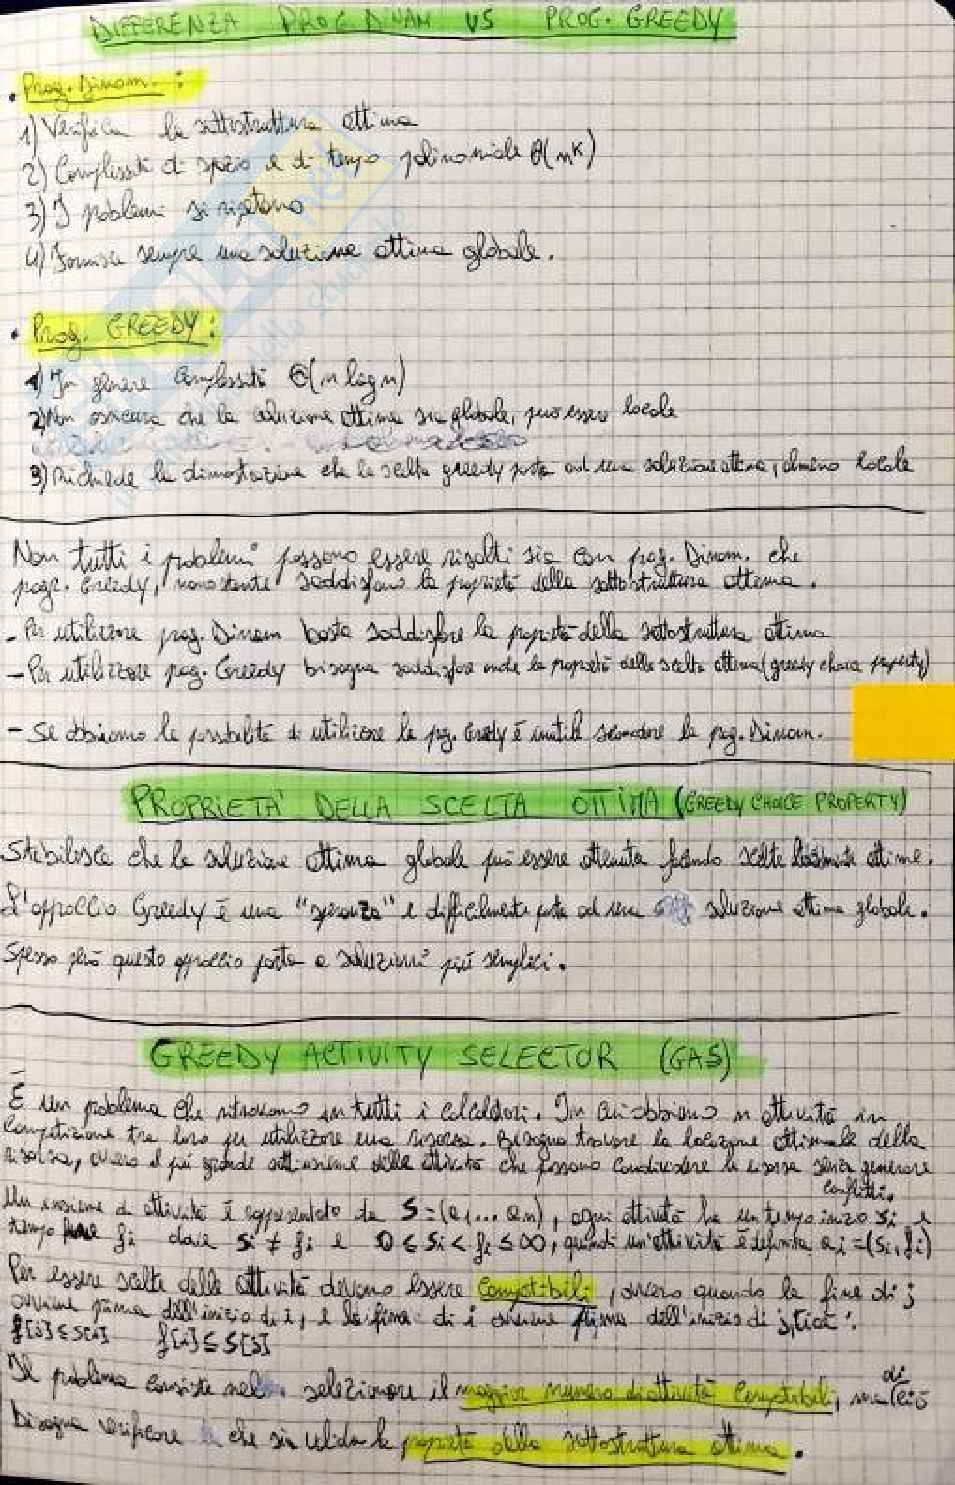 DIFFERENZA PROG. DINAM VS PROG. GREEDY
• Prog. Dinam. :
1) Verifica la sottostruttura ottima
2) Complessità di spazio e di tempo polinomiale θ(n^k)
3) I problemi si ripetono
4) Fornisce sempre una soluzione ottima globale.
• Prog. GREEDY :
1) In genere complessità θ(n log n)
2) Non assicura che la soluzione ottima sia globale, può essere locale
3) Richiede la dimostrazione che la scelta greedy porta ad una soluzione ottima, almeno locale
Non tutti i problemi possono essere risolti sia con prog. Dinam. che
progr. Greedy, nonostante soddisfano la proprietà della sottostruttura ottima.
- Per utilizzare prog. Dinam basta soddisfare la proprietà della sottostruttura ottima
- Per utilizzare prog. Greedy bisogna soddisfare anche la proprietà della scelta ottima (greedy choice property)
- Se abbiamo la possibilità di utilizzare la prog. Greedy è inutile scomodare la prog. Dinam.
PROPRIETA' DELLA SCELTA OTTIMA (GREEDY CHOICE PROPERTY)
Stabilisce che la soluzione ottima globale può essere ottenuta facendo scelte localmente ottime.
L'approccio Greedy è una "speranza" e difficilmente porta ad una soluzione ottima globale.
Spesso però questo approccio porta a soluzioni più semplici.
GREEDY ACTIVITY SELECTOR (GAS)
È un problema che ritroviamo in tutti i calcolatori. In cui abbiamo n attività in
competizione tra loro per utilizzare una risorsa. Bisogna trovare la locazione ottimale della
risorsa, ovvero il più grande sottinsieme delle attività che possono condividere la risorsa senza generare
conflitti.
Un insieme di attività è rappresentato da S=(a1...an), ogni attività ha un tempo inizio si e
tempo fine fi dove si ≠ fi e 0 ≤ si < fi ≤ ∞, quindi un'attività è definita ai=(si, fi)
Per essere scelte delle attività devono essere compatibili, ovvero quando la fine di j
avviene prima dell'inizio di i, e la fine di i avviene prima dell'inizio di j, cioè :
f[j] ≤ s[i] f[i] ≤ s[j]
Il problema consiste nel selezionare il maggior numero di attività compatibili, ma di ciò
bisogna verificare che sia valida la proprietà della sottostruttura ottima.